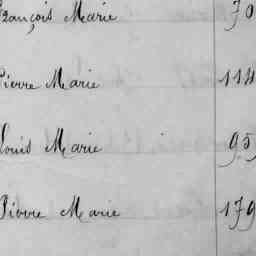 François Marie 70
Pierre Marie 114
Louis Marie 95
Pierre Marie 179